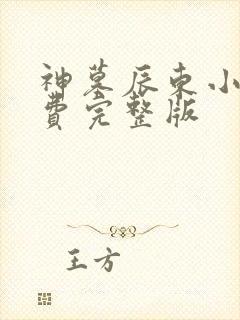 神墓辰东小
费完整版
王方